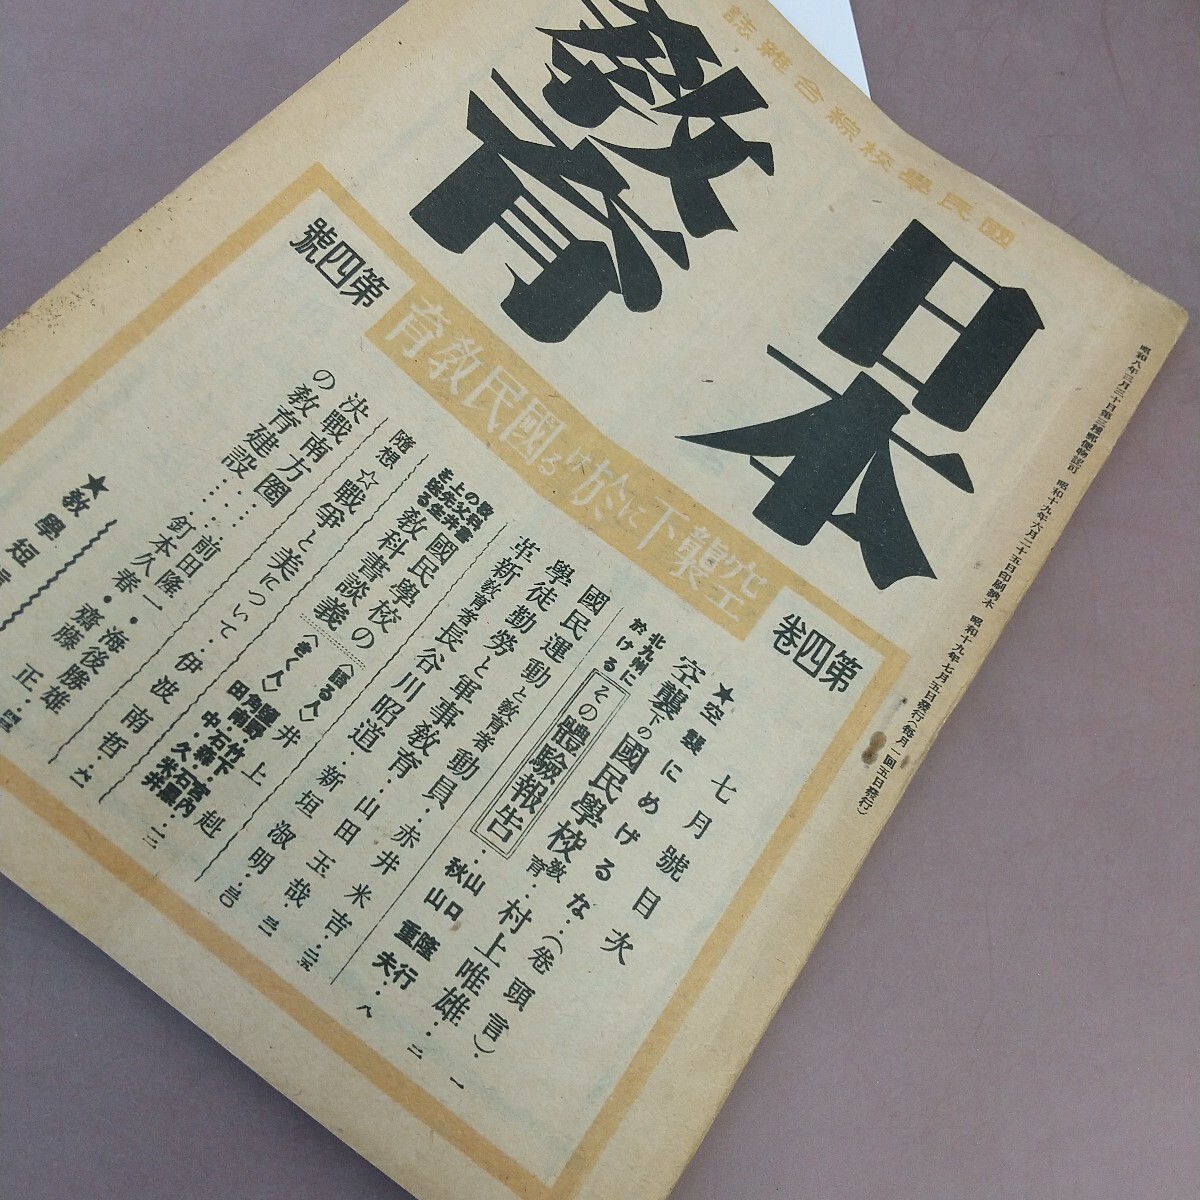 國民學校綜合雜誌
日本
教育
昭和八年三月三十日第三種郵便物認可 昭和十九年六月二十五日印刷納本 昭和十九年七月五日發行(每月一回五日發行)
第四卷
空襲下に於ける國民教育
第四號
七月號目次
★空襲にめげるな‥(卷頭言)‥一
空襲下の國民學校教育‥村上唯雄‥二
北九州に於ける
その體驗報告
山口隆行
秋山重夫‥八
國民運動と教育者
學徒勤勞と軍事教育‥赤井米吉‥二五
革新教育者長谷川昭道‥山田玉哉‥三二
國民學校の教科書談義
(語る人)井上赳
(きく人)
隨想☆戰爭と美について‥伊波南哲‥六
決戰南方圈の教育建設
前田隆一・海後勝雄
釘本久春・齋藤正
★教學短信